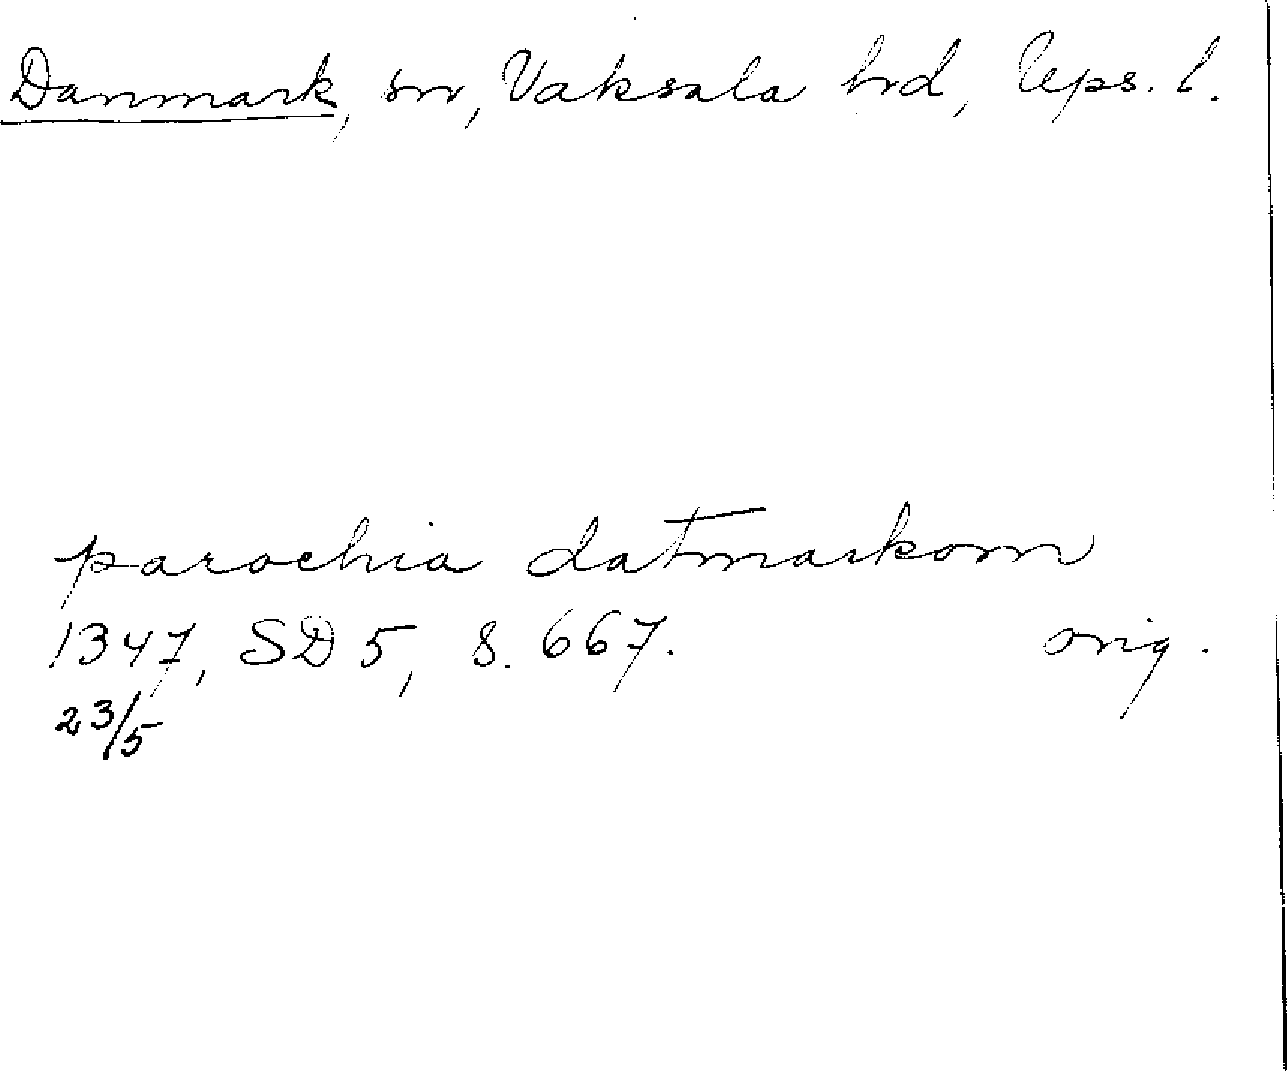 Danmark, sn, Vaksala hrd, Ups. l.
parochia datmarkom
1347, SD 5, s. 667. orig.
23/5